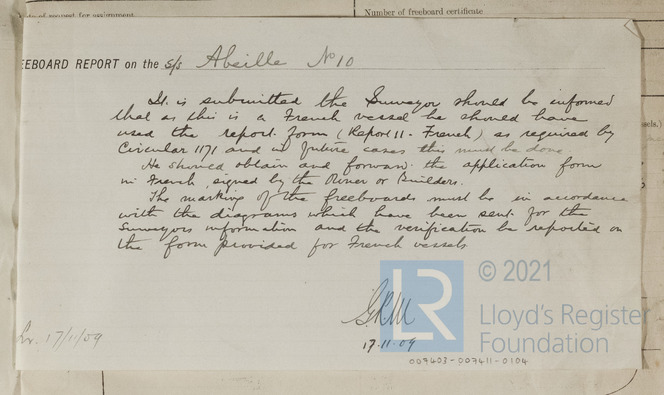 Date of request for assignment
Number of freeboard certificate
EEBOARD REPORT on the s/s Abeille No 10
It is submitted the Surveyor should be informed
that as this is a French vessel he should have
used the report form (Report 11 - French) as required by
Circular 1171 and in future cases this must be done.
He should obtain and forward the application form
in French, signed by the Owner or Builders.
The marking of the freeboards must be in accordance
with the diagrams which have been sent for the
Surveyors information and the verification be reported on
the form provided for French vessels
sels.)
17.11.09
17/11/09
LR
© 2021
Lloyd's Register
Foundation
007403-007411-0104